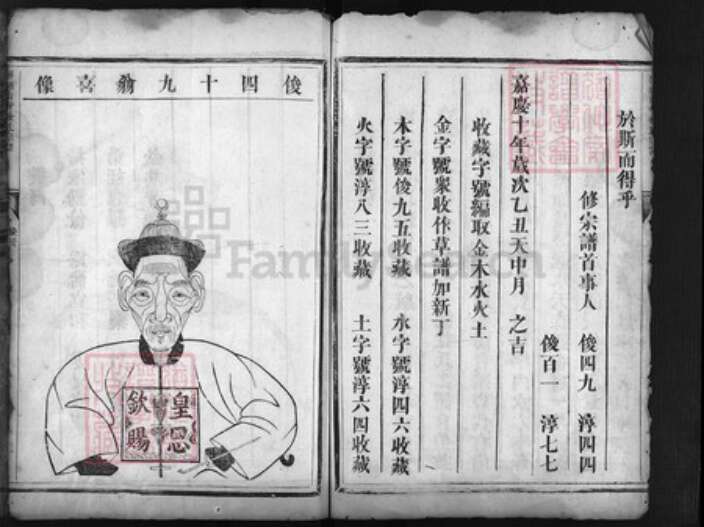 於斯而得乎
修宗譜首事人 俊四九 淳四四
俊百一 淳七七
嘉慶十年歲次乙丑天中月 之吉
收藏字號編取金木水火土
金字號衆收作草譜加新丁
木字號俊九五收藏 水字號淳四六收藏
火字號淳八三收藏 土字號淳六四收藏
俊四十九翁喜像
皇恩
欽賜
FamilySearch